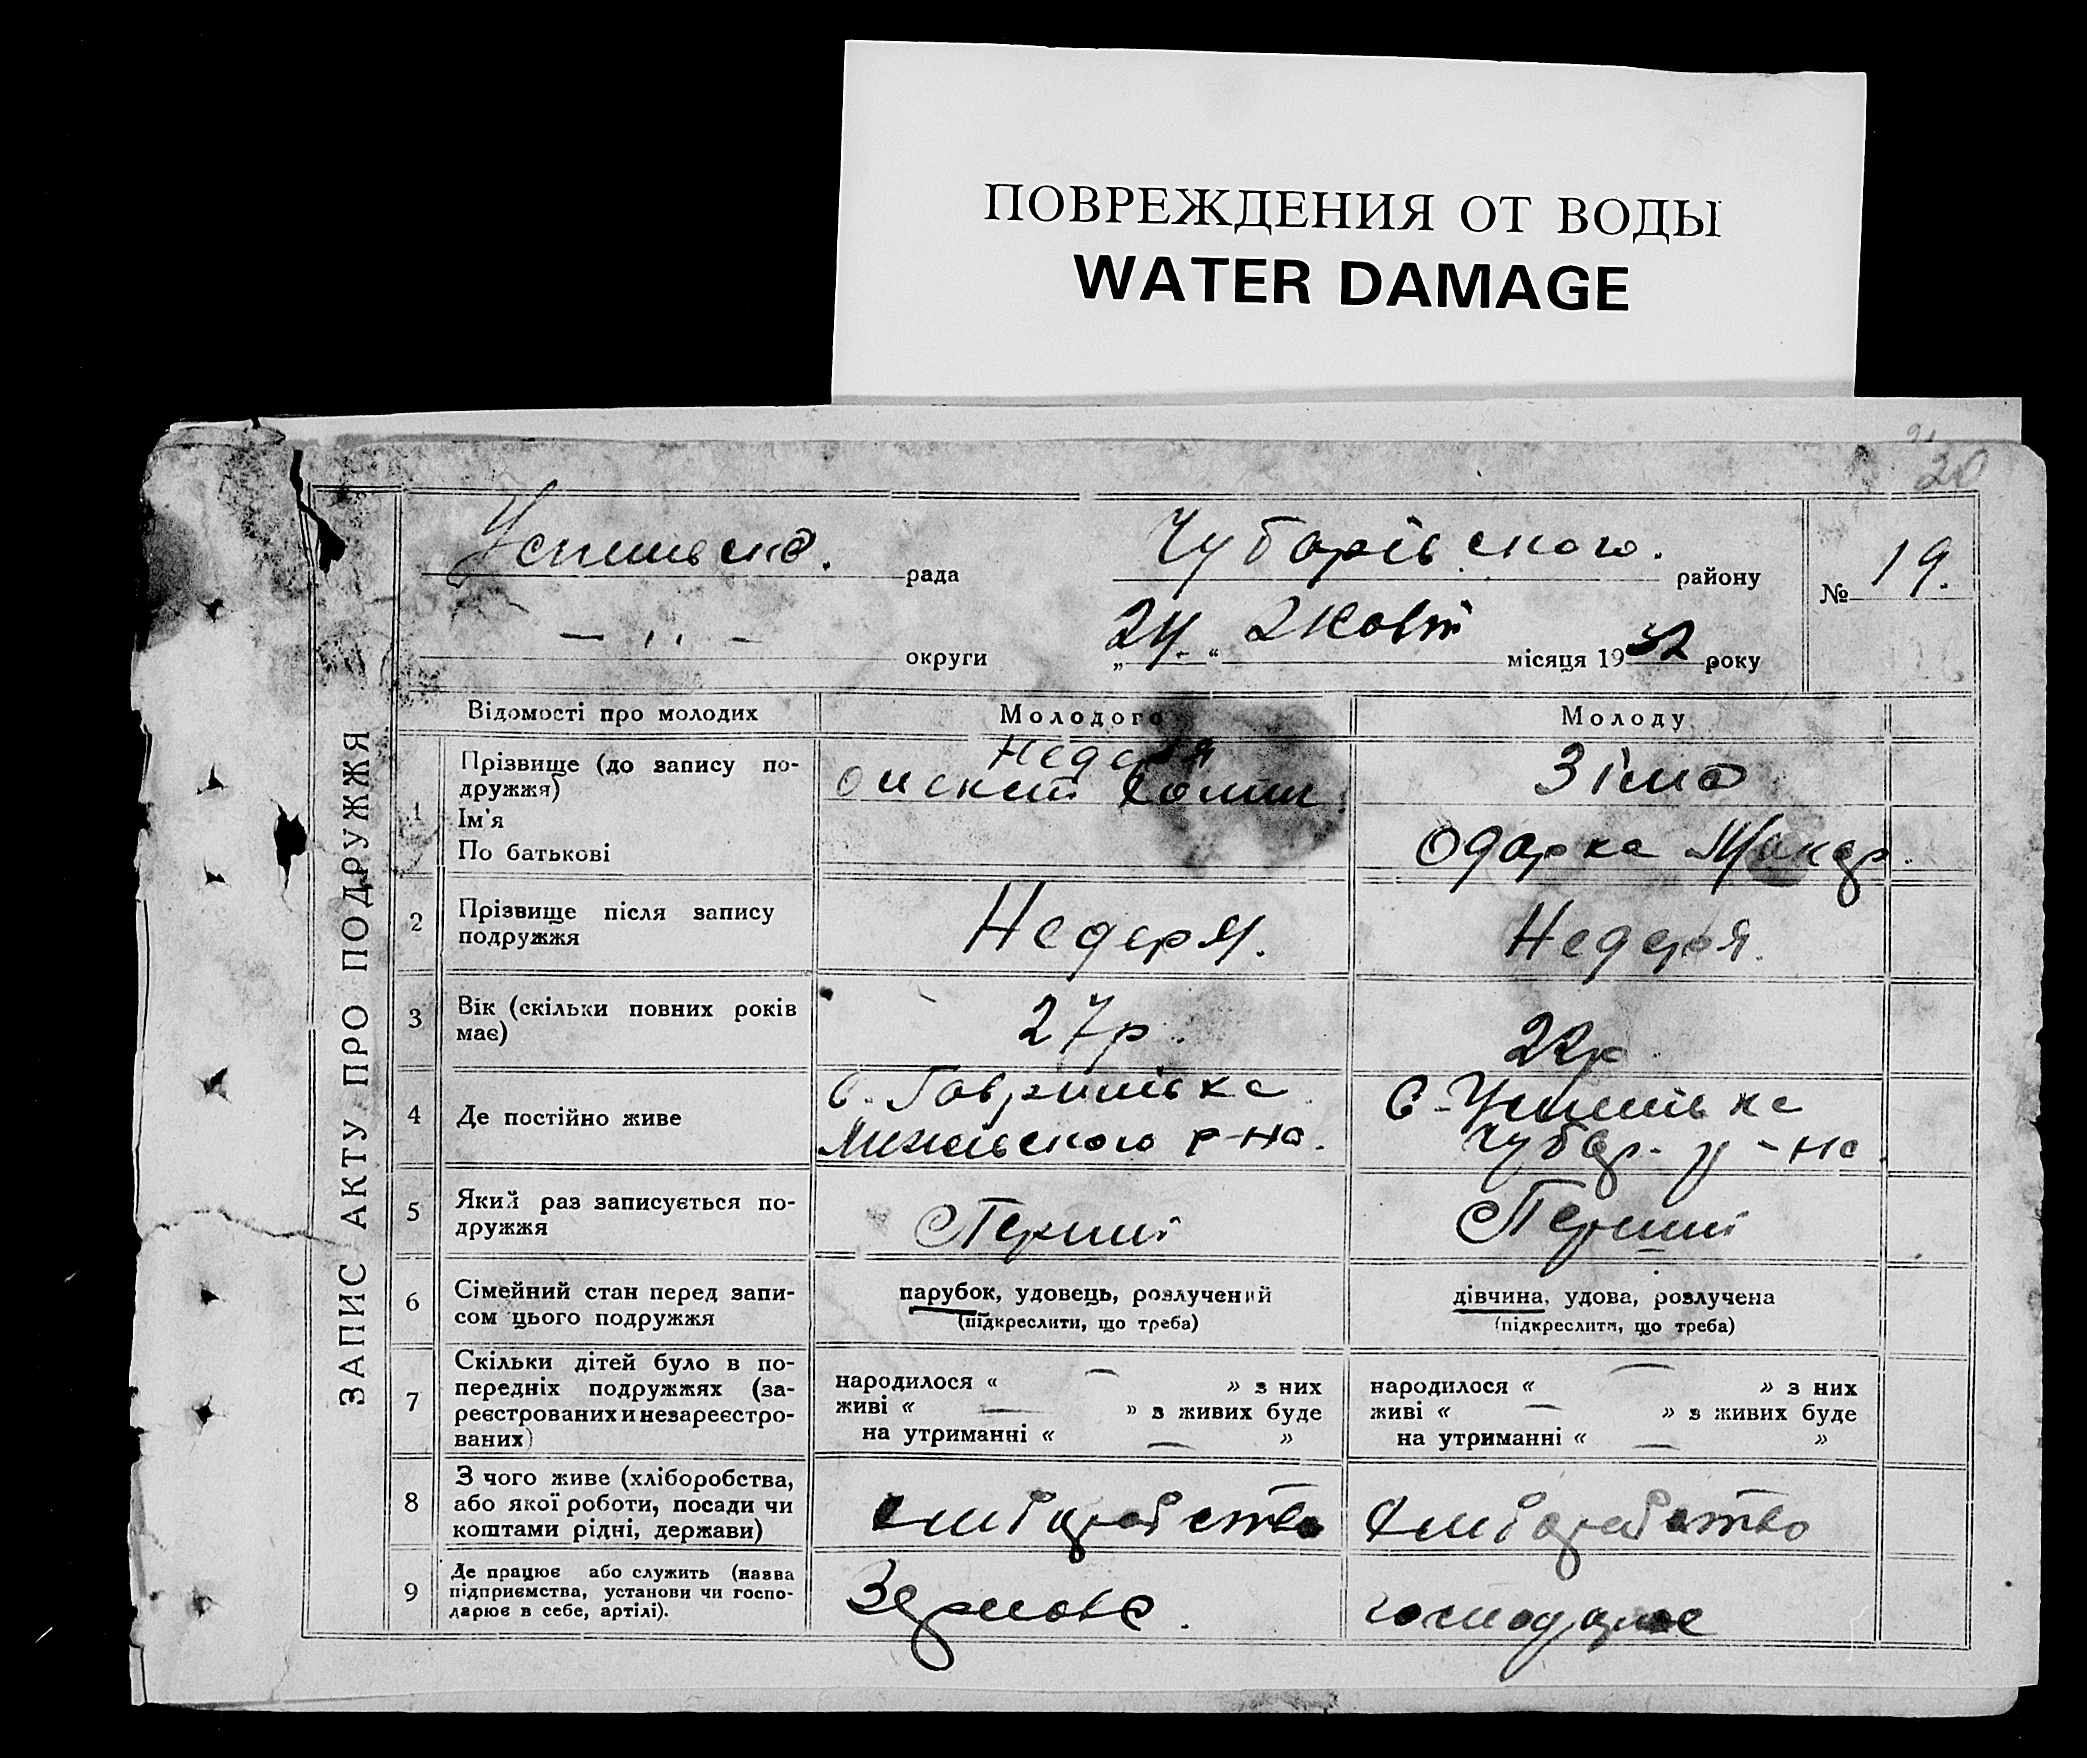 ПОВРЕЖДЕНИЯ ОТ ВОДЫ
WATER DAMAGE
20
ЗАПИС АКТУ ПРО ПОДРУЖЖЯ
рада
Чубарівського. району
№ 19.
— ,, — округи
„24.“ жовт місяця 1932 року
Відомості про молодих
Молодого
Молоду
1
Прізвище (до запису по-
дружжя)
Ім'я
По батькові
Недеря
Зіма
Одарка Макар.
2
Прізвище після запису
подружжя
Недеря.
Недеря.
3
Вік (скільки повних років
має)
27р.
22р.
4
Де постійно живе
с. Гаврилівка
р-на.
с. Успенівка
Чубар. р-на.
5
Який раз записується по-
дружжя
Перший
Перший
6
Сімейний стан перед запи-
сом цього подружжя
парубок, удовець, розлучений
(підкреслити, що треба)
дівчина, удова, розлучена
(підкреслити, що треба)
7
Скільки дітей було в по-
передніх подружжях (за-
реєстрованих и незареєстро-
ваних)
народилося « — » з них
живі « — » з живих буде
на утриманні « — »
народилося « — » з них
живі « — » з живих буде
на утриманні « — »
8
З чого живе (хліборобства,
або якої роботи, посади чи
коштами рідні, держави)
хліборобство
хліборобство
9
Де працює або служить (назва
підприємства, установи чи госпо-
дарює в себе, артілі).